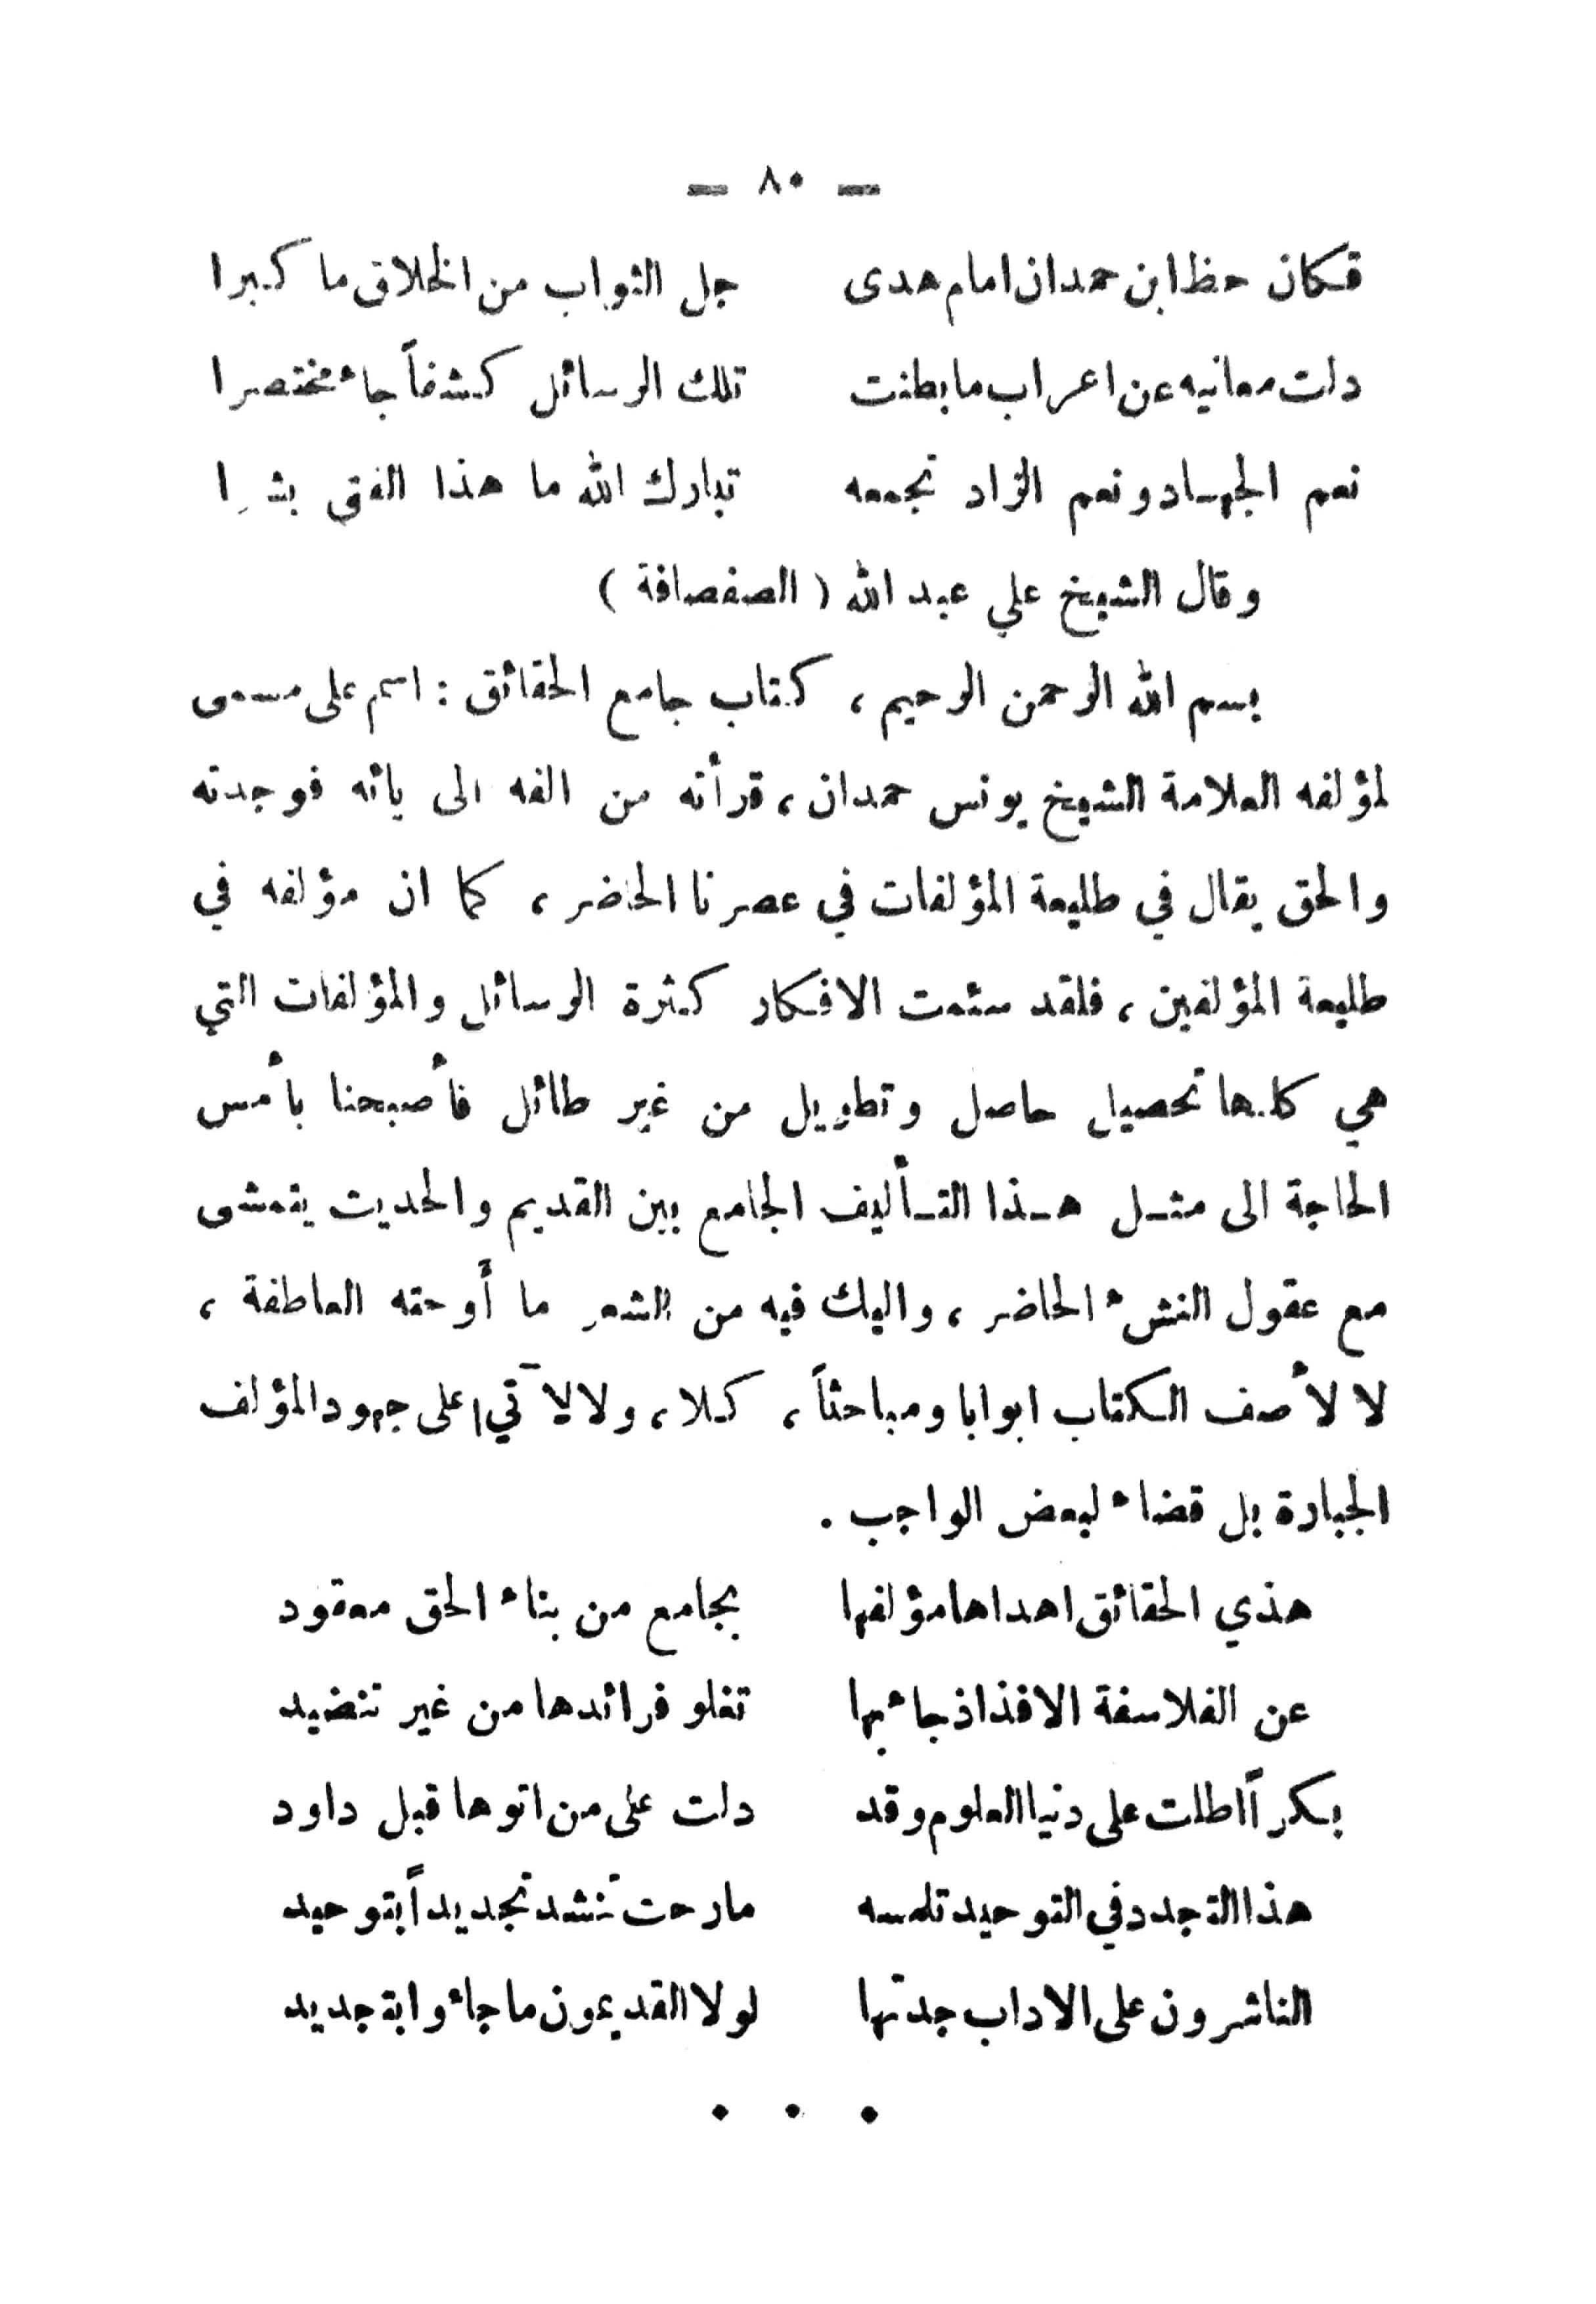 — ٨٠ —
فكان حظ ابن حمدان امام هدى جل الثواب من الخلاق ما كبرا
دلت معانيه عن اعراب ما بطنت تلك الرسائل كشفاً جاء مختصرا
نعم الجهاد ونعم الزاد تجمعه تبارك الله ما هذا الفتى بشرا
وقال الشيخ علي عبد الله ( الصفصافة )
بسم الله الرحمن الرحيم ، كتاب جامع الحقائق : اسم على مسمى
لمؤلفه العلامة الشيخ يونس حمدان ، قرأته من الفه الى يائه فوجدته
والحق يقال في طليعة المؤلفات في عصرنا الحاضر ، كما ان مؤلفه في
طليعة المؤلفين ، فلقد سئمت الافكار كثرة الرسائل والمؤلفات التي
هي كلها تحصيل حاصل وتطويل من غير طائل فأصبحنا بأمس
الحاجة الى مثل هذا التأليف الجامع بين القديم والحديث يتمشى
مع عقول النشء الحاضر ، واليك فيه من الشعر ما أوحته العاطفة ،
لا لأصف الكتاب ابوابا ومباحثاً ، كلا ، ولا لآتي على جهود المؤلف
الجبارة بل قضاء لبعض الواجب .
هذي الحقائق اهداها مؤلفها بجامع من بناء الحق معقود
عن الفلاسفة الافذاذ جاء بها تغلو فرائدها من غير تنضيد
بكراً اطلت على دنيا العلوم وقد دلت على من اتوها قبل داود
هذا التجدد في التوحيد تلمسه مارحت تنشد تجديداً بتوحيد
الناشرون على الاداب جدتها لولا القديمون ما جاءوا بتجديد
• • •